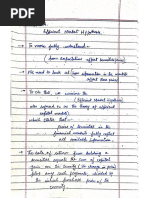 Efficient Market Hypothesis
→ To more fully understand -
how expectations affect securities prices
→ We need to look at how information in the markets
affect these prices
→ To do this, we examine the
(Efficient Market Hypothesis)
also referred to as the theory of efficient
capital markets)
which states that -
prices of securities in the
financial markets fully reflect
all available information.
→ The rate of return from holding a
securities equals the sum of capital
gain on the security (the change in price)
plus any cash payments, divided by
the initial purchase price of the
security.